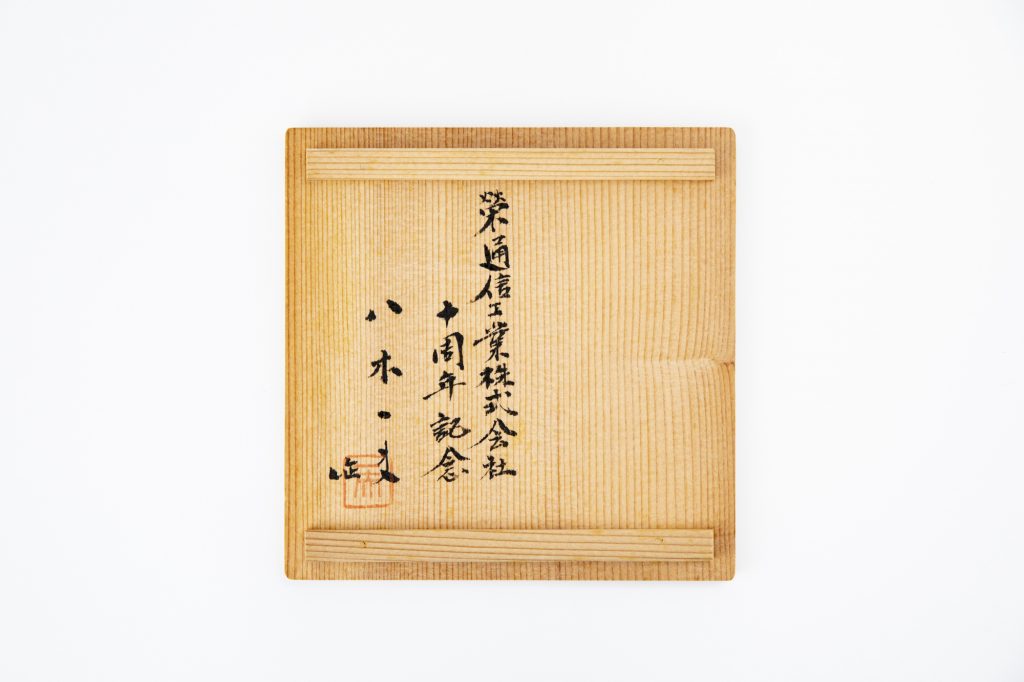 榮通信工業株式会社
十周年記念
八木一夫
作